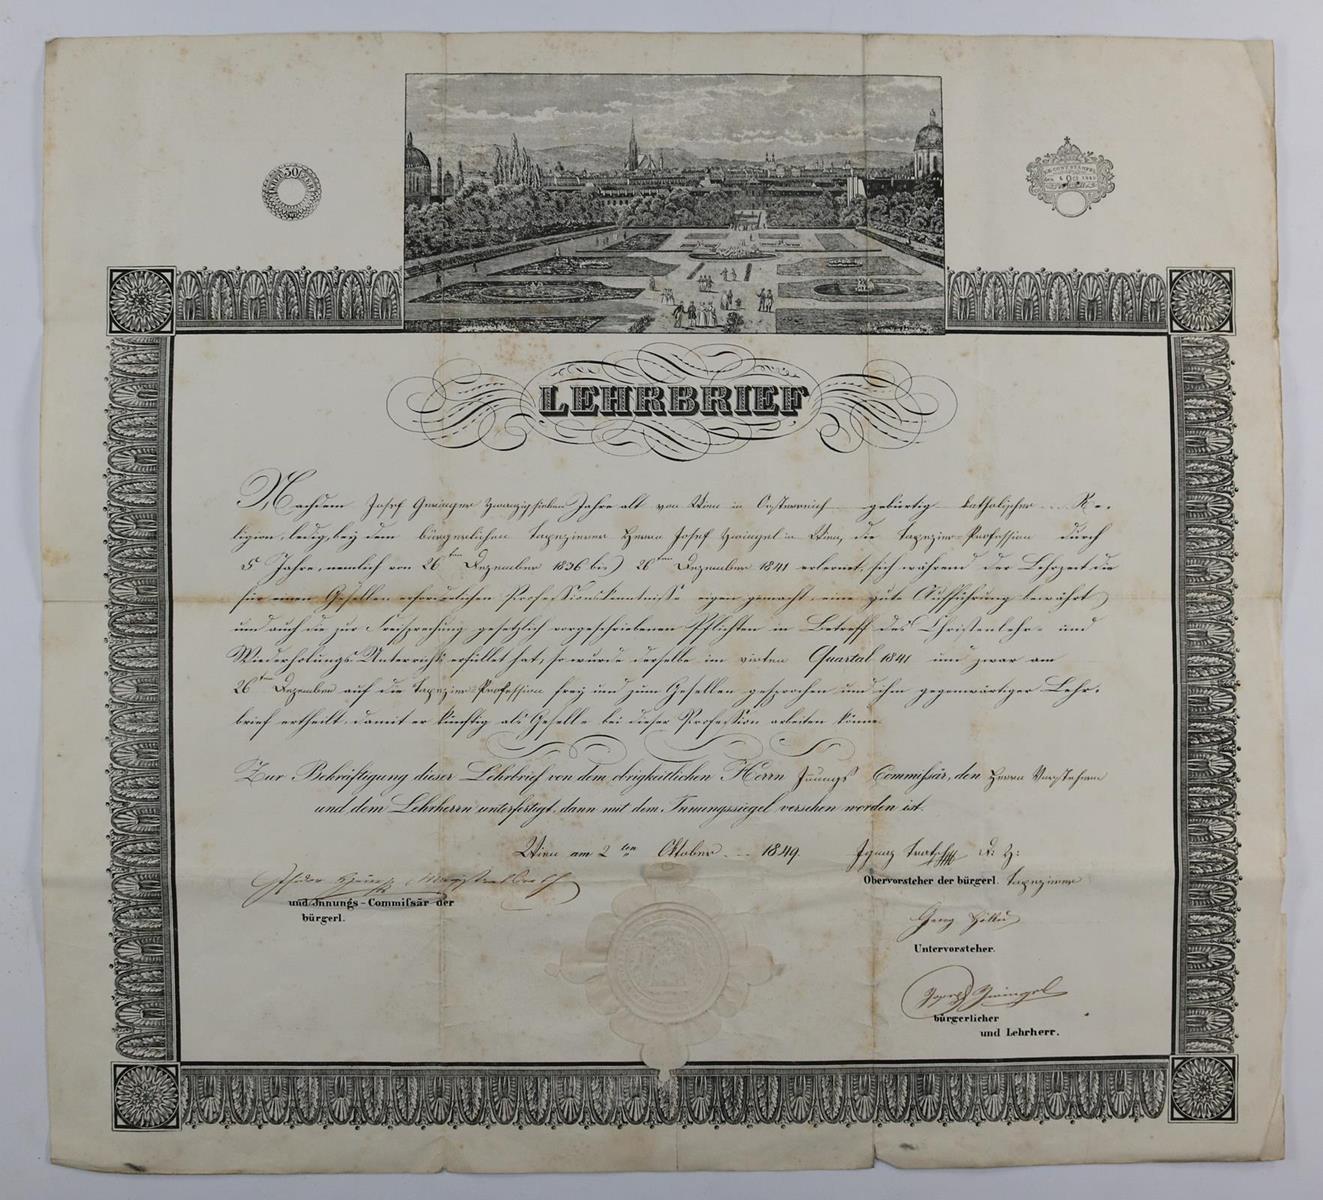 30
LEHRBRIEF
Nachdem Josef Geringer zwanzigsieben Jahre alt von Wien in Oesterreich gebürtig katholischer Re-
ligion, ledig, bey dem bürgerlichen Tapezierer Herrn Josef Zwingel in Wien, die Tapezier-Profession durch
5 Jahre, nemlich von 26ten Dezember 1836 bis 26ten Dezember 1841 erlernet, sich während der Lehrzeit die
für einen Gesellen erforderlichen Professionskenntnisse eigen gemacht, eine gute Aufführung bewährt
und auch die zur Freisprechung gesetzlich vorgeschriebenen Pflichten in Betreff des Christenlehr- und
Wiederholungs-Unterrichts erfüllet hat, so wurde derselbe im vierten Quartal 1841 und zwar am
26ten Dezember auf die Tapezier-Profession frei und zum Gesellen gesprochen und ihm gegenwärtiger Lehr-
brief ertheilt, damit er künftig als Geselle bei dieser Profession arbeiten könne.
Zur Bekräftigung dieser Lehrbrief von dem obrigkeitlichen Herrn Innungs Commißär, den Herrn Vorstehern
und dem Lehrherrn unterfertigt, dann mit dem Innungssiegel versehen worden ist.
Wien am 2ten Oktober 1849.
Ignaz
Obervorsteher der bürgerl. Tapezierer
und Innungs-Commißär der
bürgerl.
Georg
Untervorsteher.
Josef Zwingel
bürgerlicher
und Lehrherr.